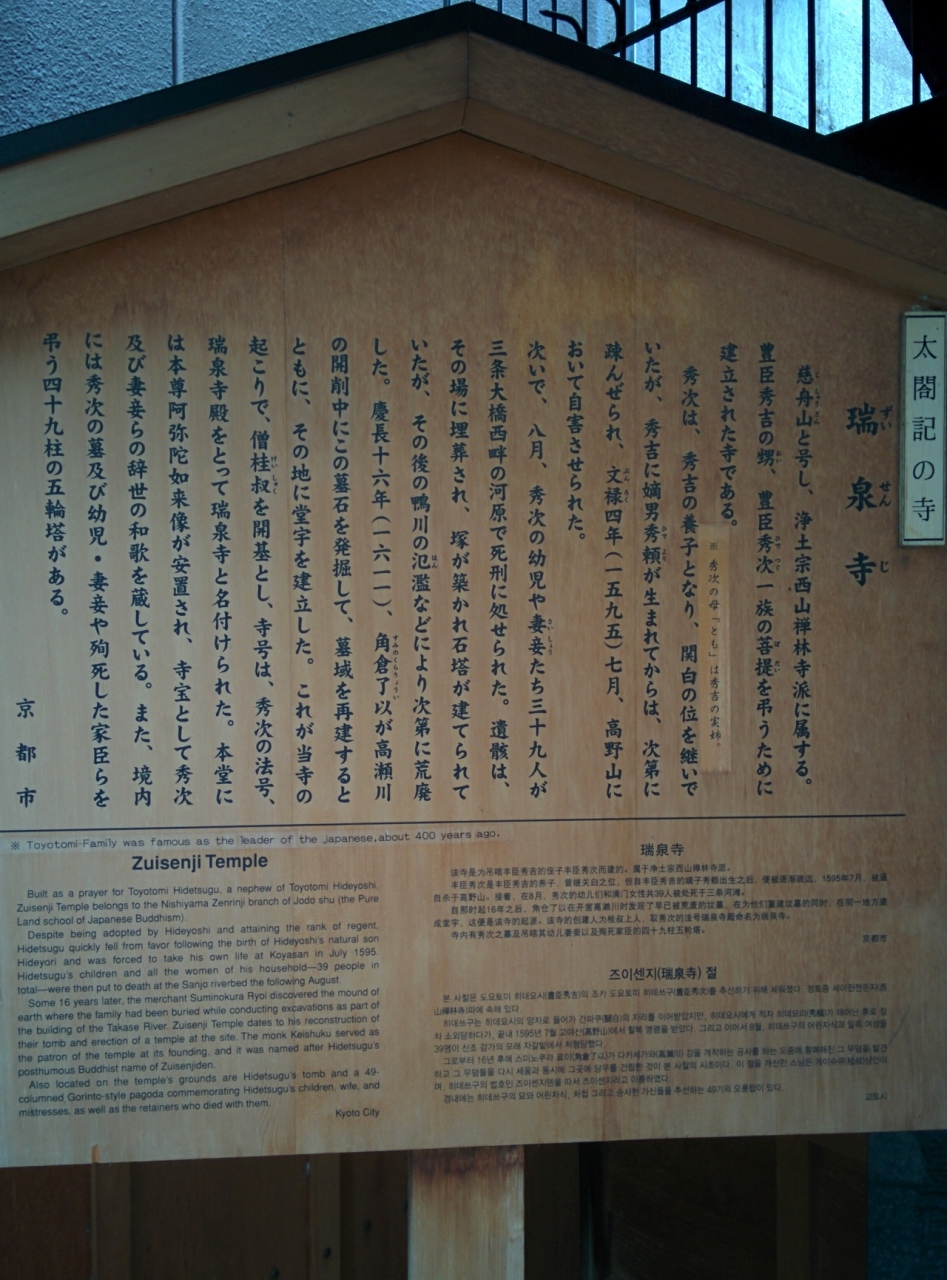 太閤記の寺
瑞泉寺
ずいせんじ
慈舟山と号し、浄土宗西山禅林寺派に属する。
豊臣秀吉の甥、豊臣秀次一族の菩提を弔うために
建立された寺である。
※秀次の母「とも」は秀吉の実姉。
秀次は、秀吉の養子となり、関白の位を継いで
いたが、秀吉に嫡男秀頼が生まれてからは、次第に
疎んぜられ、文禄四年(一五九五)七月、高野山に
おいて自害させられた。
次いで、八月、秀次の幼児や妻妾たち三十九人が
三条大橋西畔の河原で死刑に処せられた。遺骸は、
その場に埋葬され、塚が築かれ石塔が建てられて
いたが、その後の鴨川の氾濫などにより次第に荒廃
した。慶長十六年(一六一一)、角倉了以が高瀬川
の開削中にこの墓石を発掘して、墓域を再建すると
ともに、その地に堂宇を建立した。これが当寺の
起こりで、僧桂叔を開基とし、寺号は、秀次の法号、
瑞泉寺殿をとって瑞泉寺と名付けられた。本堂に
は本尊阿弥陀如来像が安置され、寺宝として秀次
及び妻妾らの辞世の和歌を蔵している。また、境内
には秀次の墓及び幼児・妻妾や殉死した家臣らを
弔う四十九柱の五輪塔がある。
京都市
※ Toyotomi-Family was famous as the leader of the japanese,about 400 years ago.
Zuisenji Temple
Built as a prayer for Toyotomi Hidetsugu, a nephew of Toyotomi Hideyoshi,
Zuisenji Temple belongs to the Nishiyama Zenrinji branch of Jodo shu (the Pure
Land school of Japanese Buddhism).
Despite being adopted by Hideyoshi and attaining the rank of regent,
Hidetsugu quickly fell from favor following the birth of Hideyoshi's natural son
Hideyori and was forced to take his own life at Koyasan in July 1595.
Hidetsugu's children and all the women of his household—39 people in
total—were then put to death at the Sanjo riverbed the following August.
Some 16 years later, the merchant Suminokura Ryoi discovered the mound of
earth where the family had been buried while conducting excavations as part of
the building of the Takase River. Zuisenji Temple dates to his reconstruction of
their tomb and erection of a temple at the site. The monk Keishuku served as
the patron of the temple at its founding, and it was named after Hidetsugu's
posthumous Buddhist name of Zuisenjiden.
Also located on the temple's grounds are Hidetsugu's tomb and a 49-
columned Gorinto-style pagoda commemorating Hidetsugu's children, wife, and
mistresses, as well as the retainers who died with them.
Kyoto City
瑞泉寺
该寺是为吊唁丰臣秀吉的侄子丰臣秀次而建的。属于净土宗西山禅林寺派。
丰臣秀次是丰臣秀吉的养子，曾继关白之位，但自丰臣秀吉的嫡子秀赖出生之后，便被逐渐疏远，1595年7月，被逼
自杀于高野山。接着，在8月，秀次的幼儿们和妻门女性共39人被处死于三条河滩。
京都市
즈이센지(瑞泉寺) 절
본 사찰은 도요토미 히데요시(豊臣秀吉)의 조카 도요토미 히데쓰구(豊臣秀次)를 추선하기 위해 세워졌다.
경내에는 히데쓰구의 묘와 어린자식, 처첩 그리고 순사한 가신들을 추선하는 49기의 오륜탑이 있다.
교토시